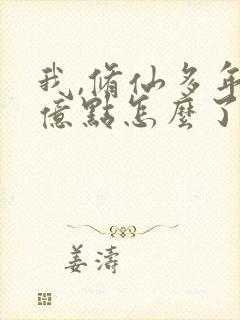 我,脩仙多年
億點怎麼了
姜濤